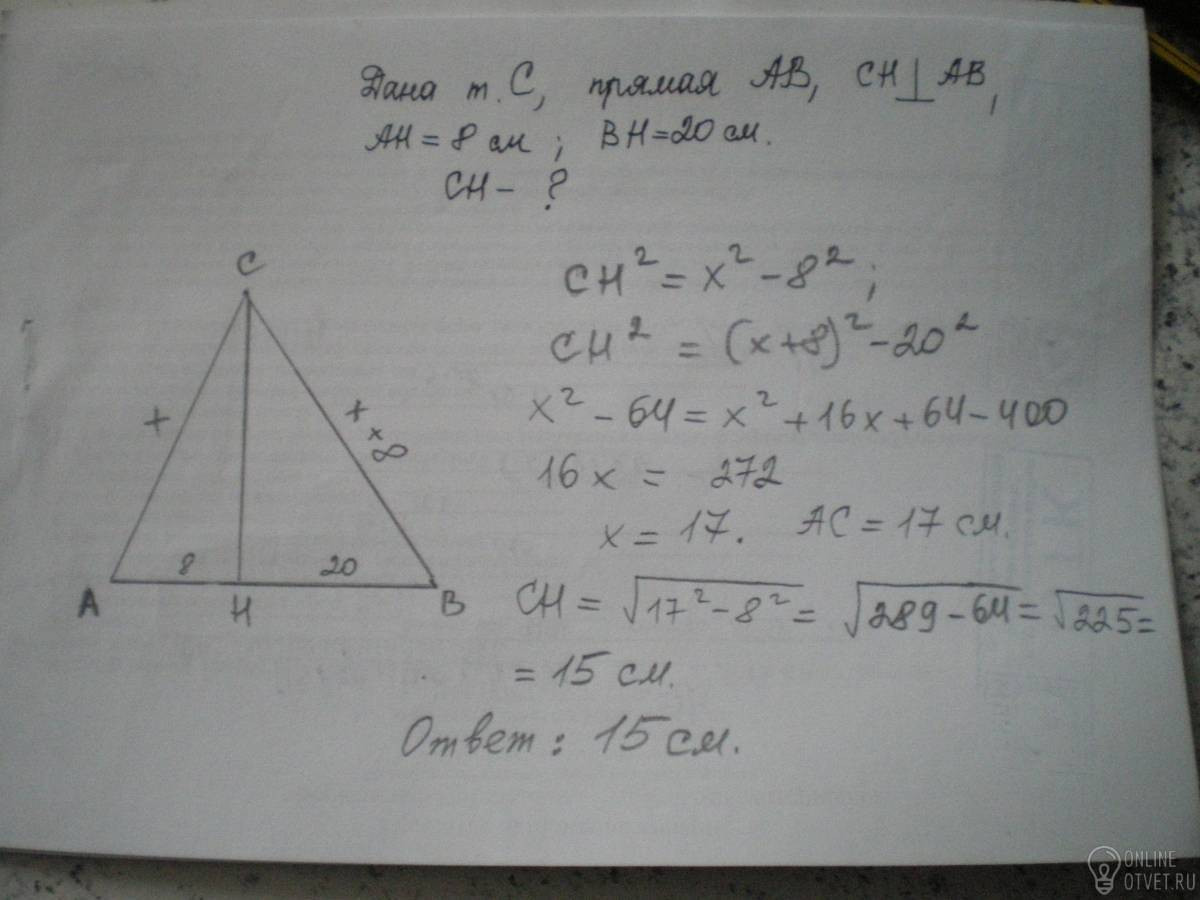 Дана т. С, прямая АВ, СН⊥АВ,
АН = 8 см ; ВН=20 см.
СН – ?
С
+
+
x
∞
8
20
А
Н
В
СН² = x² – 8² ;
СН² = (x+8)² – 20²
x² – 64 = x² + 16x + 64 – 400
16x = 272
x = 17. АС = 17 см.
СН = √17² – 8² = √289 – 64 = √225 =
= 15 см.
Ответ : 15 см.
ONLINE
OTVET.RU